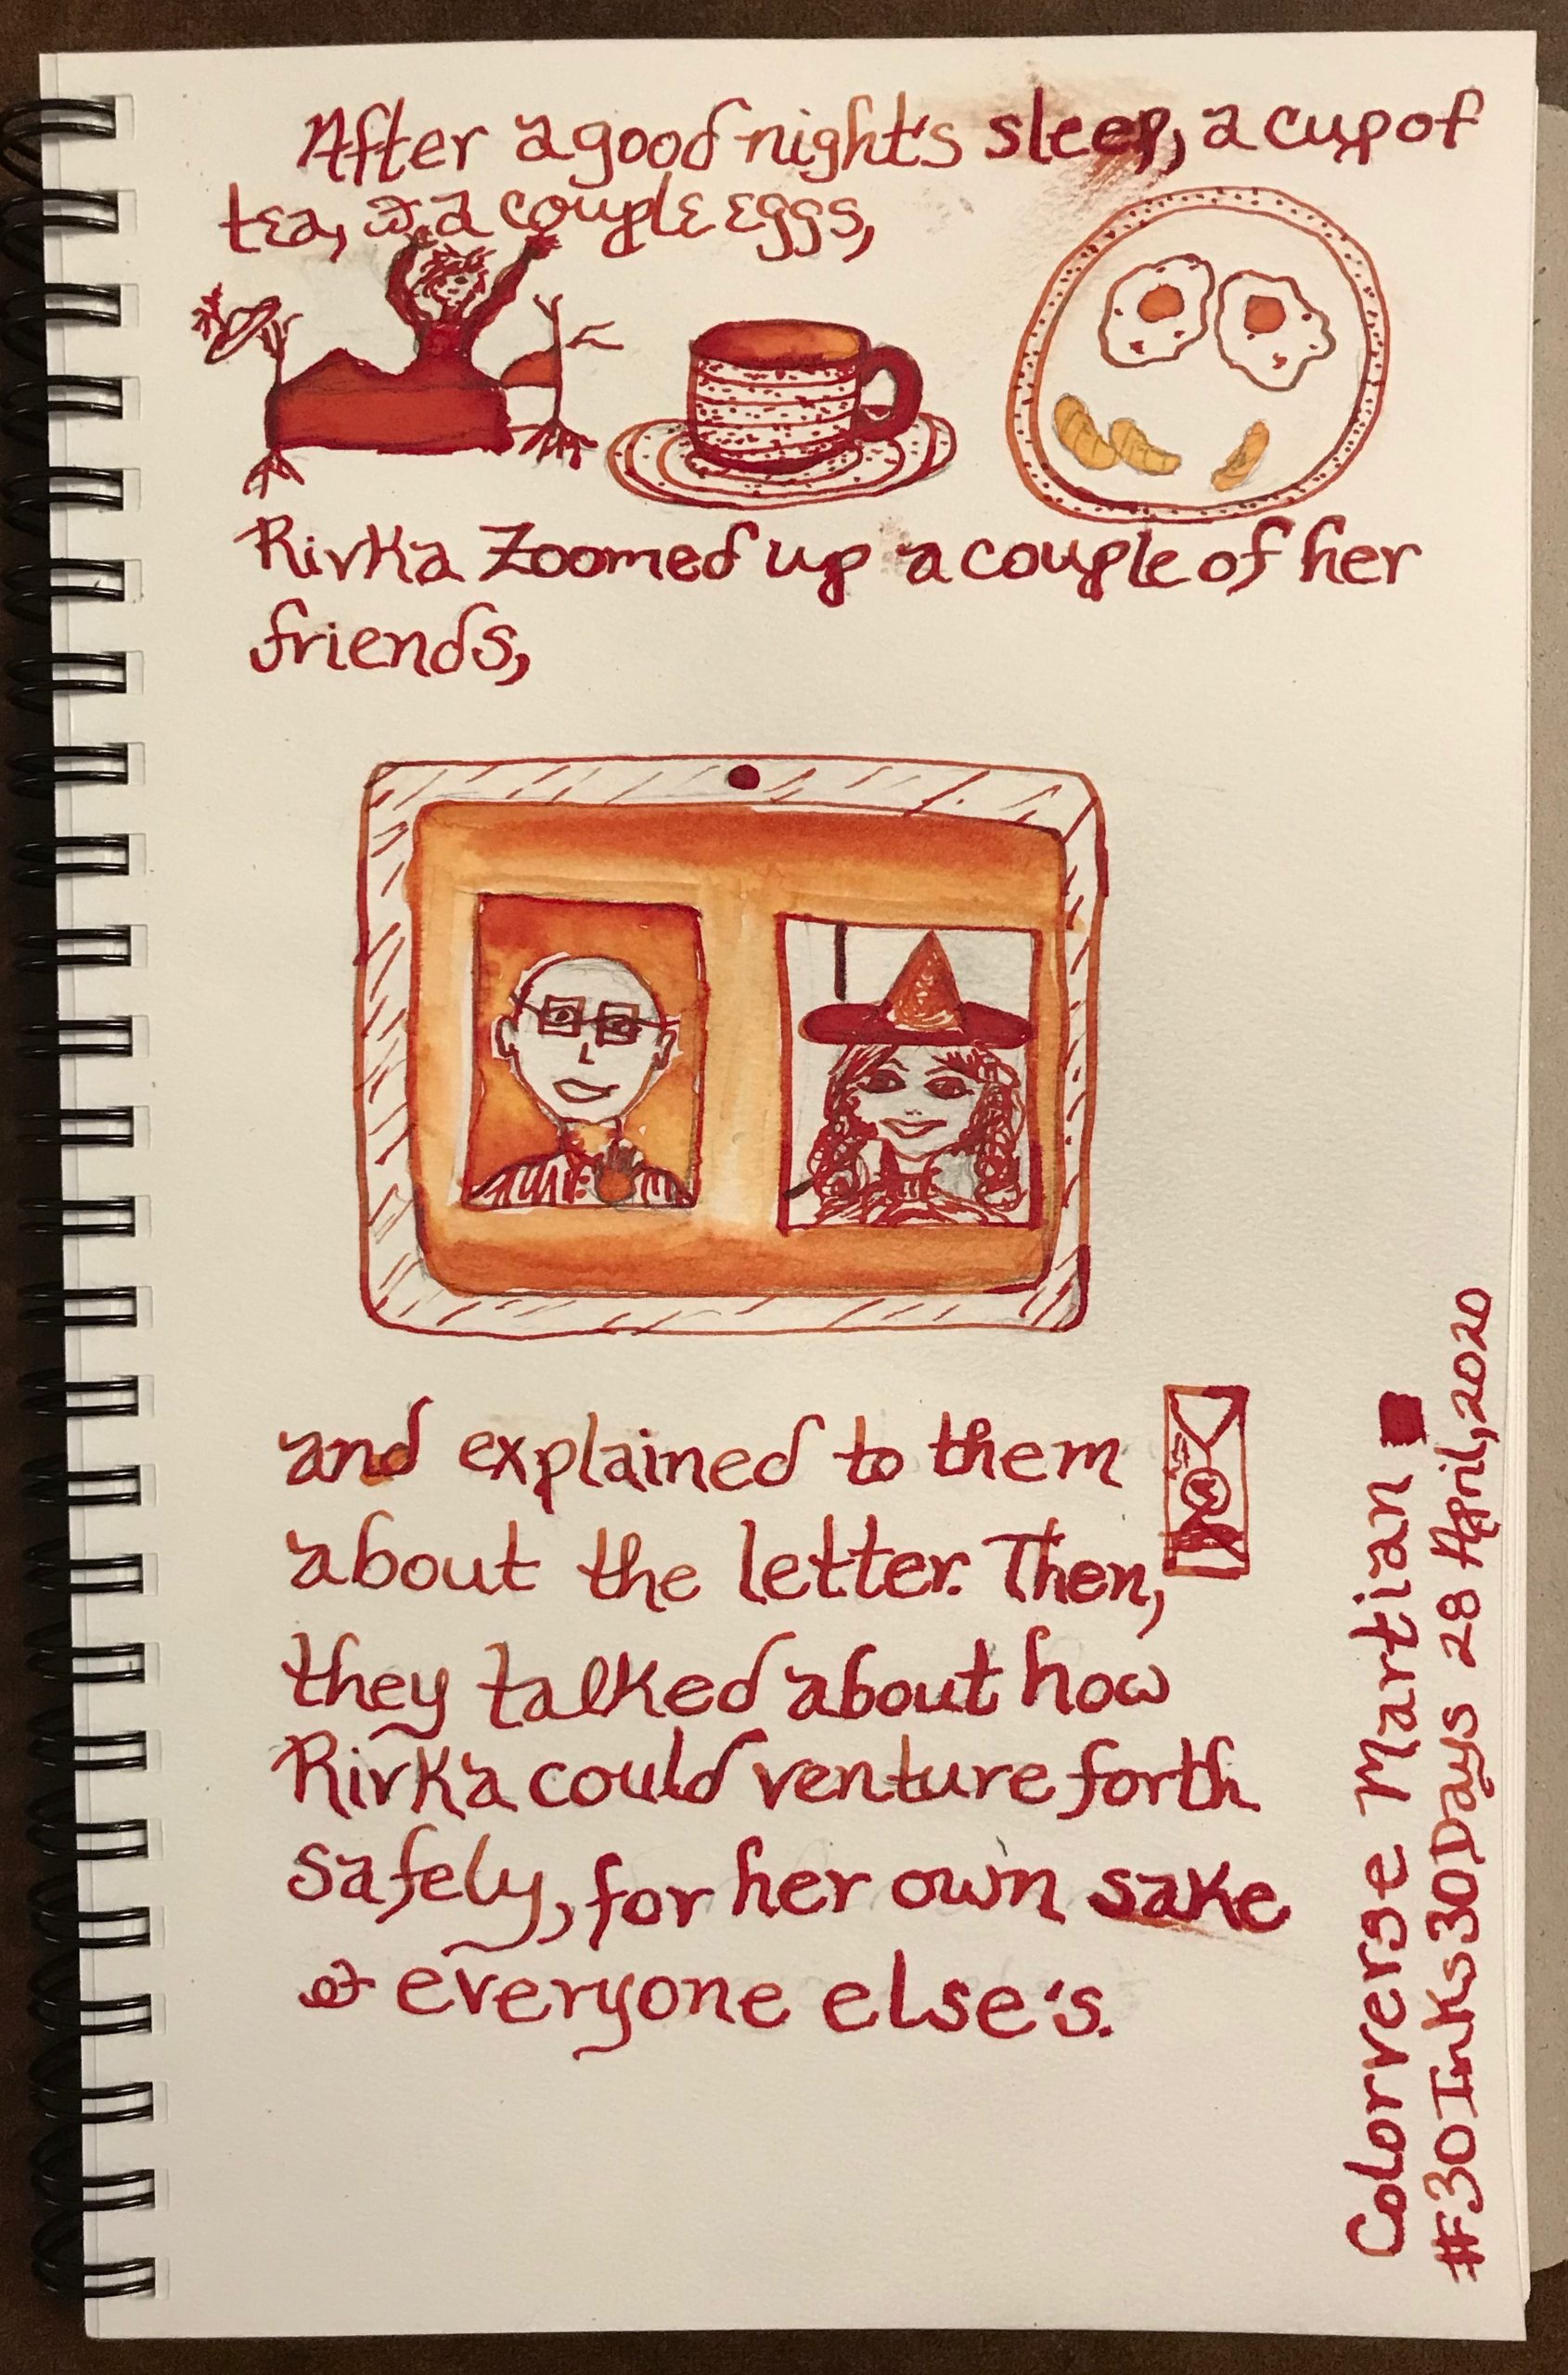 After a good night's sleep, a cup of
tea, & a couple eggs,
Rivka Zoomed up a couple of her
friends,
and explained to them
about the letter. Then,
they talked about how
Rivka could venture forth
safely, for her own sake
& everyone else's.
Colorverse Martian
#30Inks30Days 28 April, 2020